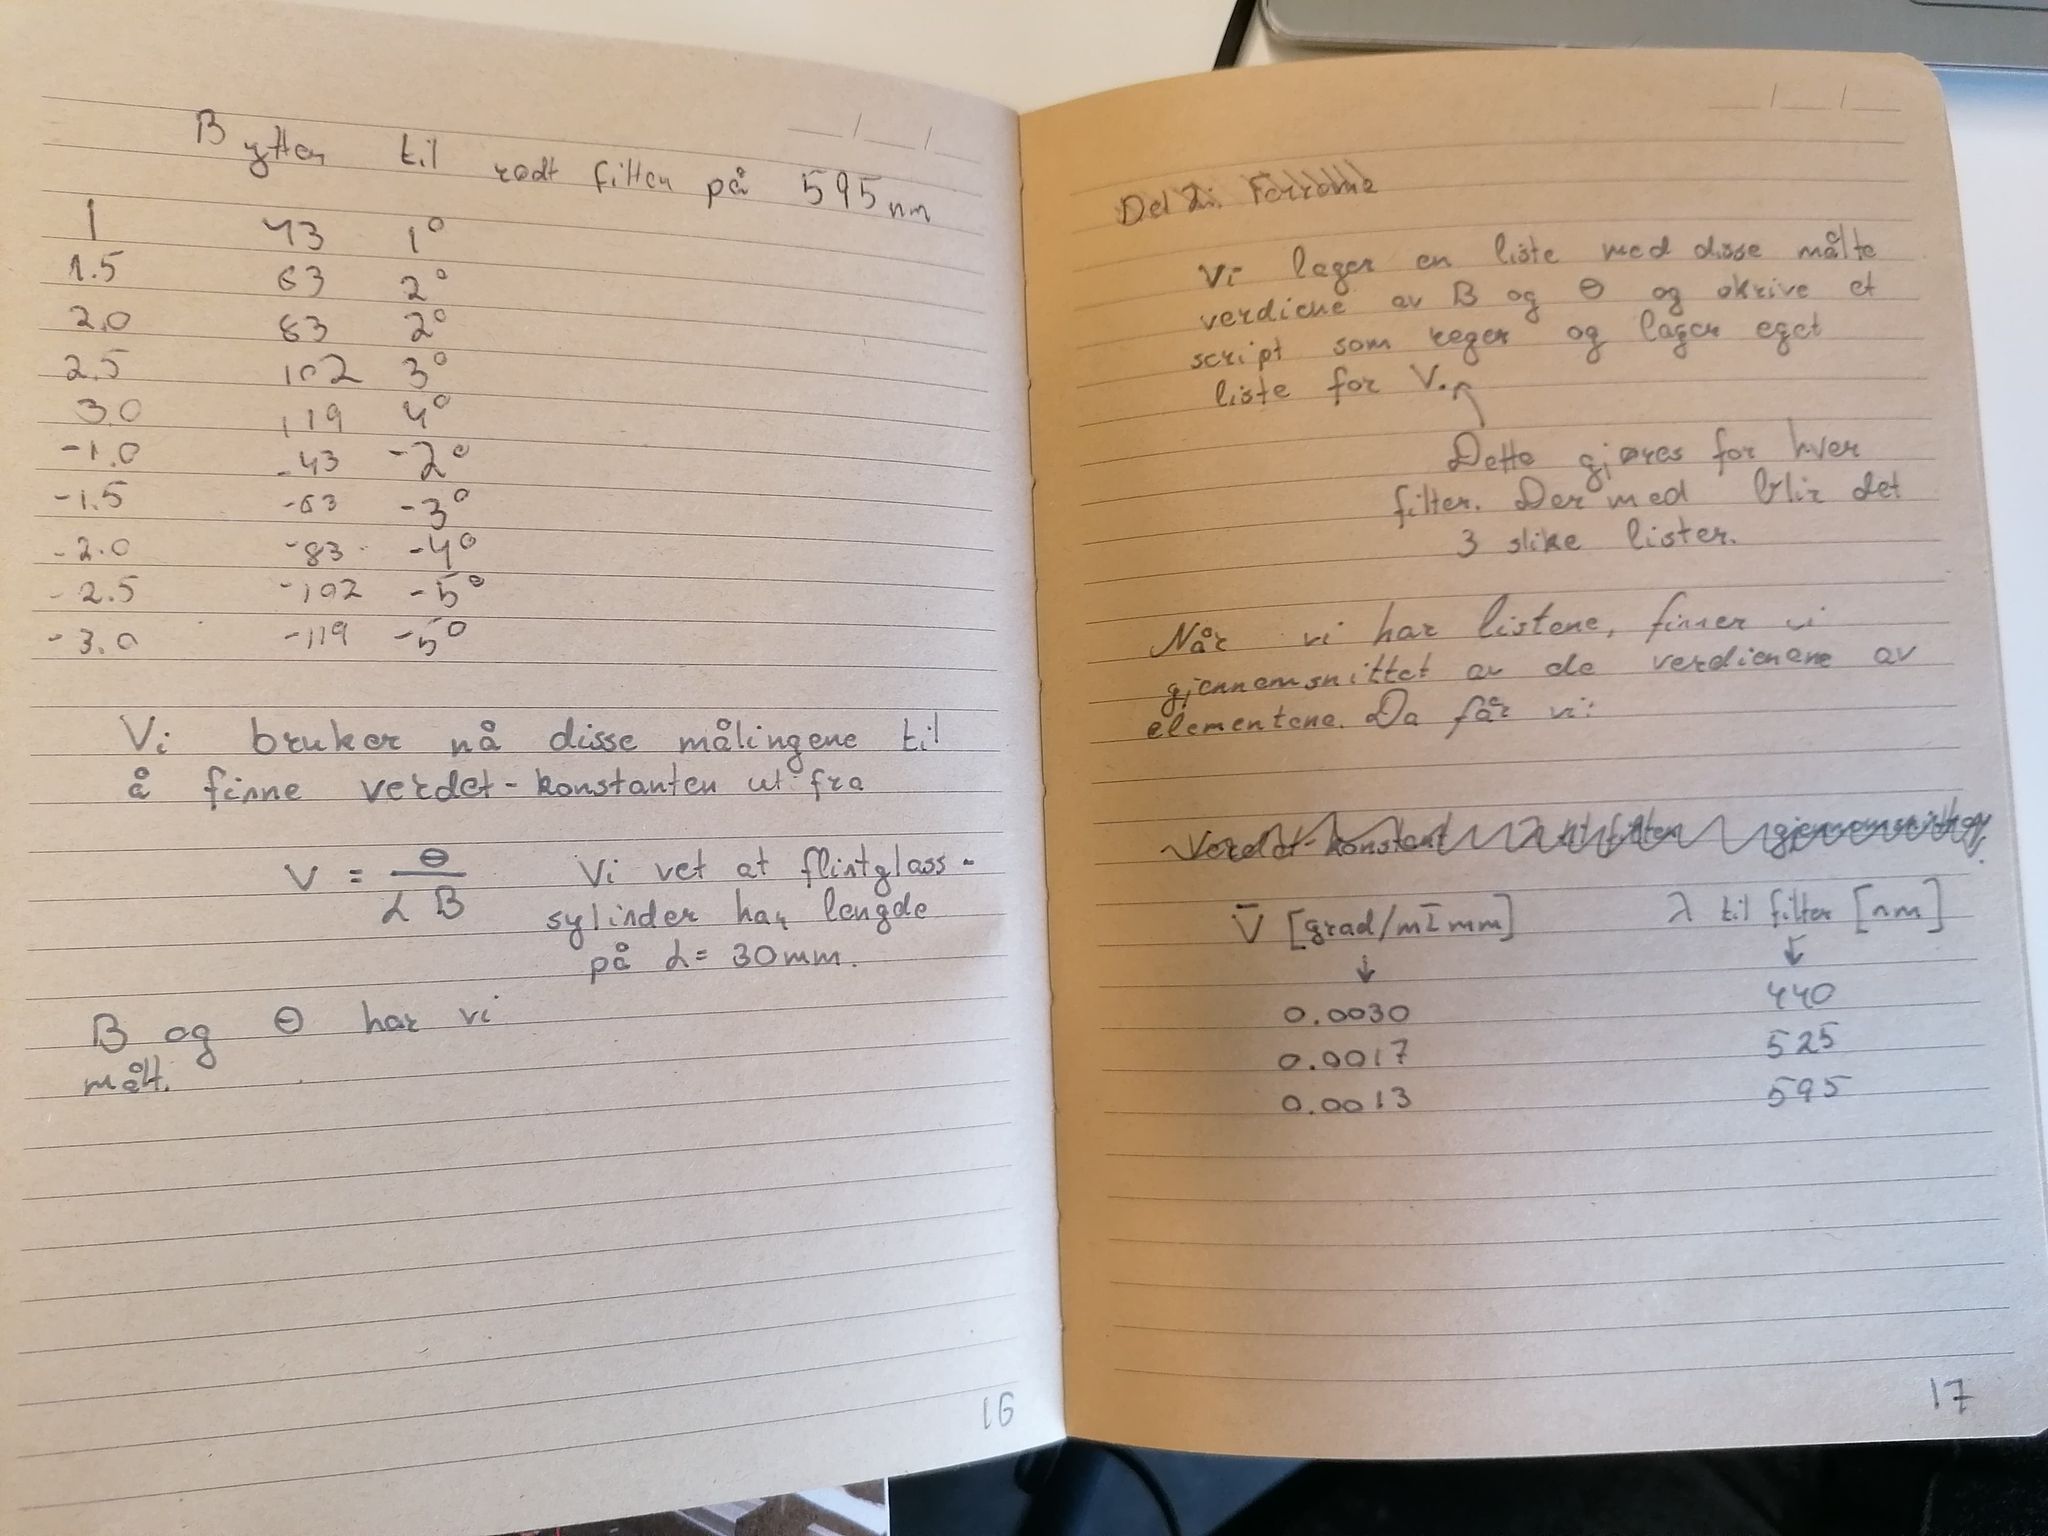 Bytter til rødt filter på 595nm
1 43 1°
1.5 63 2°
2.0 83 2°
2.5 102 3°
3.0 119 4°
-1.0 -43 -2°
-1.5 -63 -3°
-2.0 -83 -4°
-2.5 -102 -5°
-3.0 -119 -5°
Vi bruker nå disse målingene til
å finne verdet-konstanten ut fra
V = θ / LB
Vi vet at flintglass-
sylinder har lengde
på L = 30mm.
B og θ har vi
målt.
16
Del 2: Ferrome
Vi lager en liste med disse målte
verdiene av B og θ og skrive et
script som reger og lager eget
liste for V.
Dette gjøres for hver
filter. Der med blir det
3 slike lister.
Når vi har listene, finner vi
gjennomsnittet av de verdienene av
elementene. Da får vi:
Verdet-konstant λ til filter
V̄ [grad/mTmm] λ til filter [nm]
↓ ↓
0.0030 440
0.0017 525
0.0013 595
17